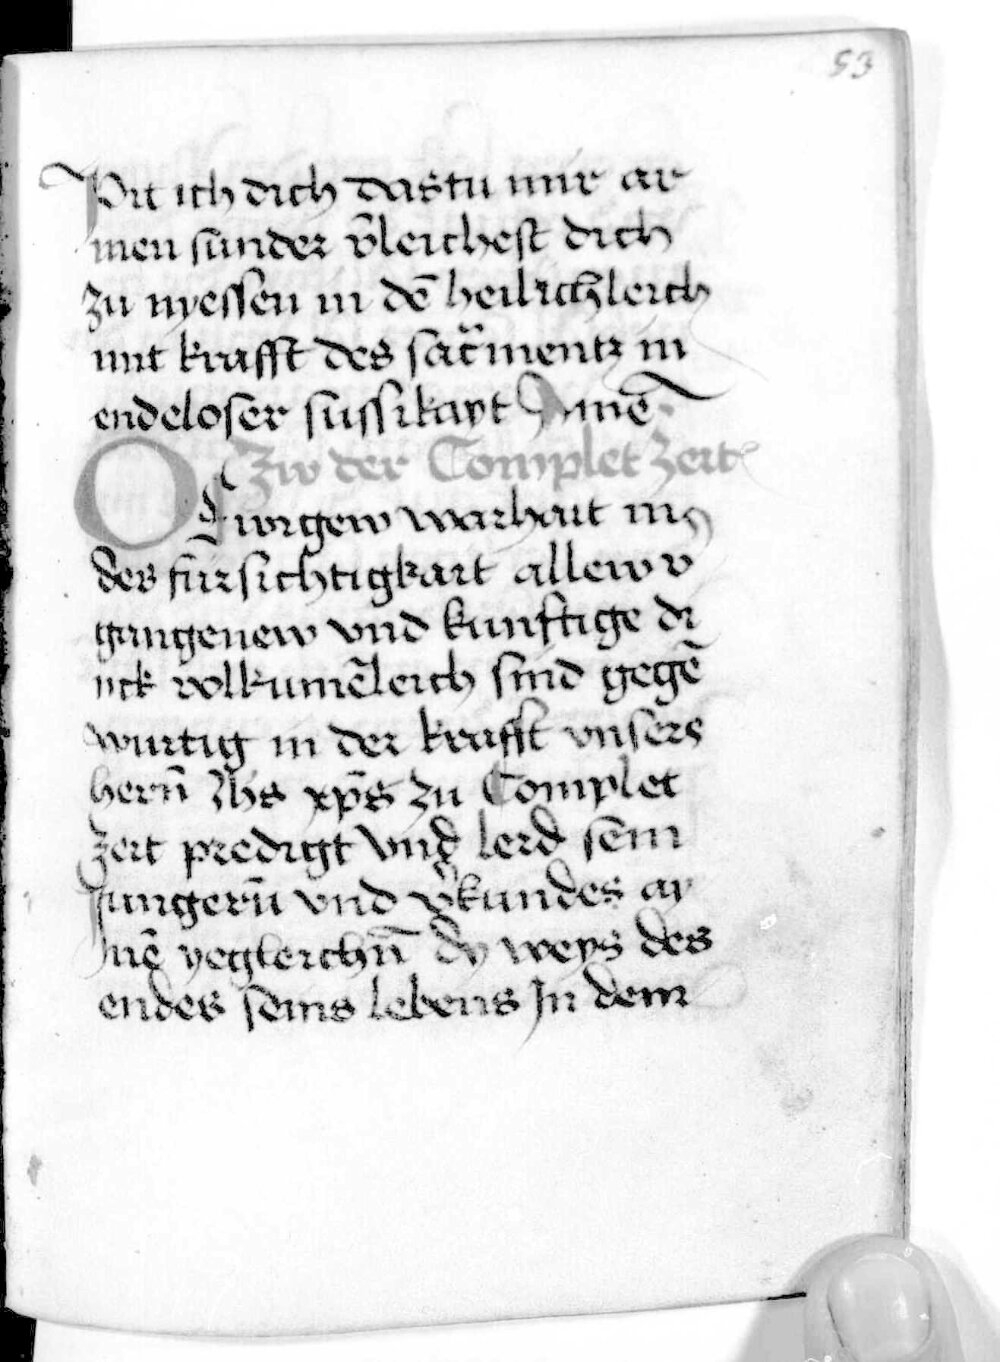 53
Pit ich dich dastu mir ar
men sunder v̄leichest dich
zu nyessen in dē heilichleich
mit krafft des sacͬmentz in
endeloser sussikayt Amē
Zw der Complet zeit
O Ewigew warhait in
der fürsichtigkait allew v̄
gangenew vnd kunftige di
nck volkumēleich sind gegē
wurtig in der krafft vnsers
hern̄ Jhs xp̄s zu Complet
zeit predigt vnd lerd sein
Jungern̄ vnd v̄kundes ay
nē yegleichn̄ dy weys des
endes seins lebens Jn dem